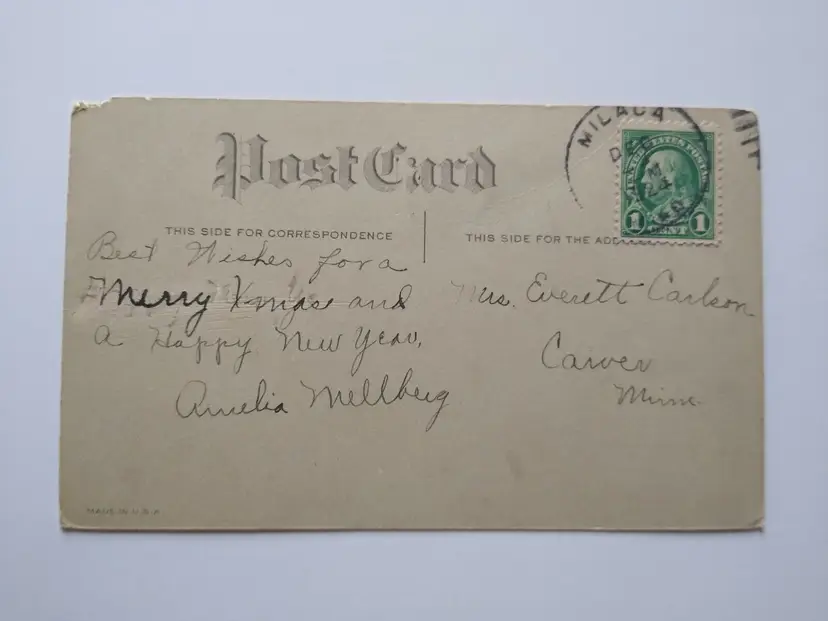 Post Card
MILACA
DEC
M
THIS SIDE FOR CORRESPONDENCE
THIS SIDE FOR THE ADDRESS
UNITED STATES POSTAGE
1 1
Best Wishes for a
Merry Xmas and
a Happy New Year,
Amelia Mellberg
Mrs. Everett Carlson
Carver
Minn.
MADE IN U.S.A.